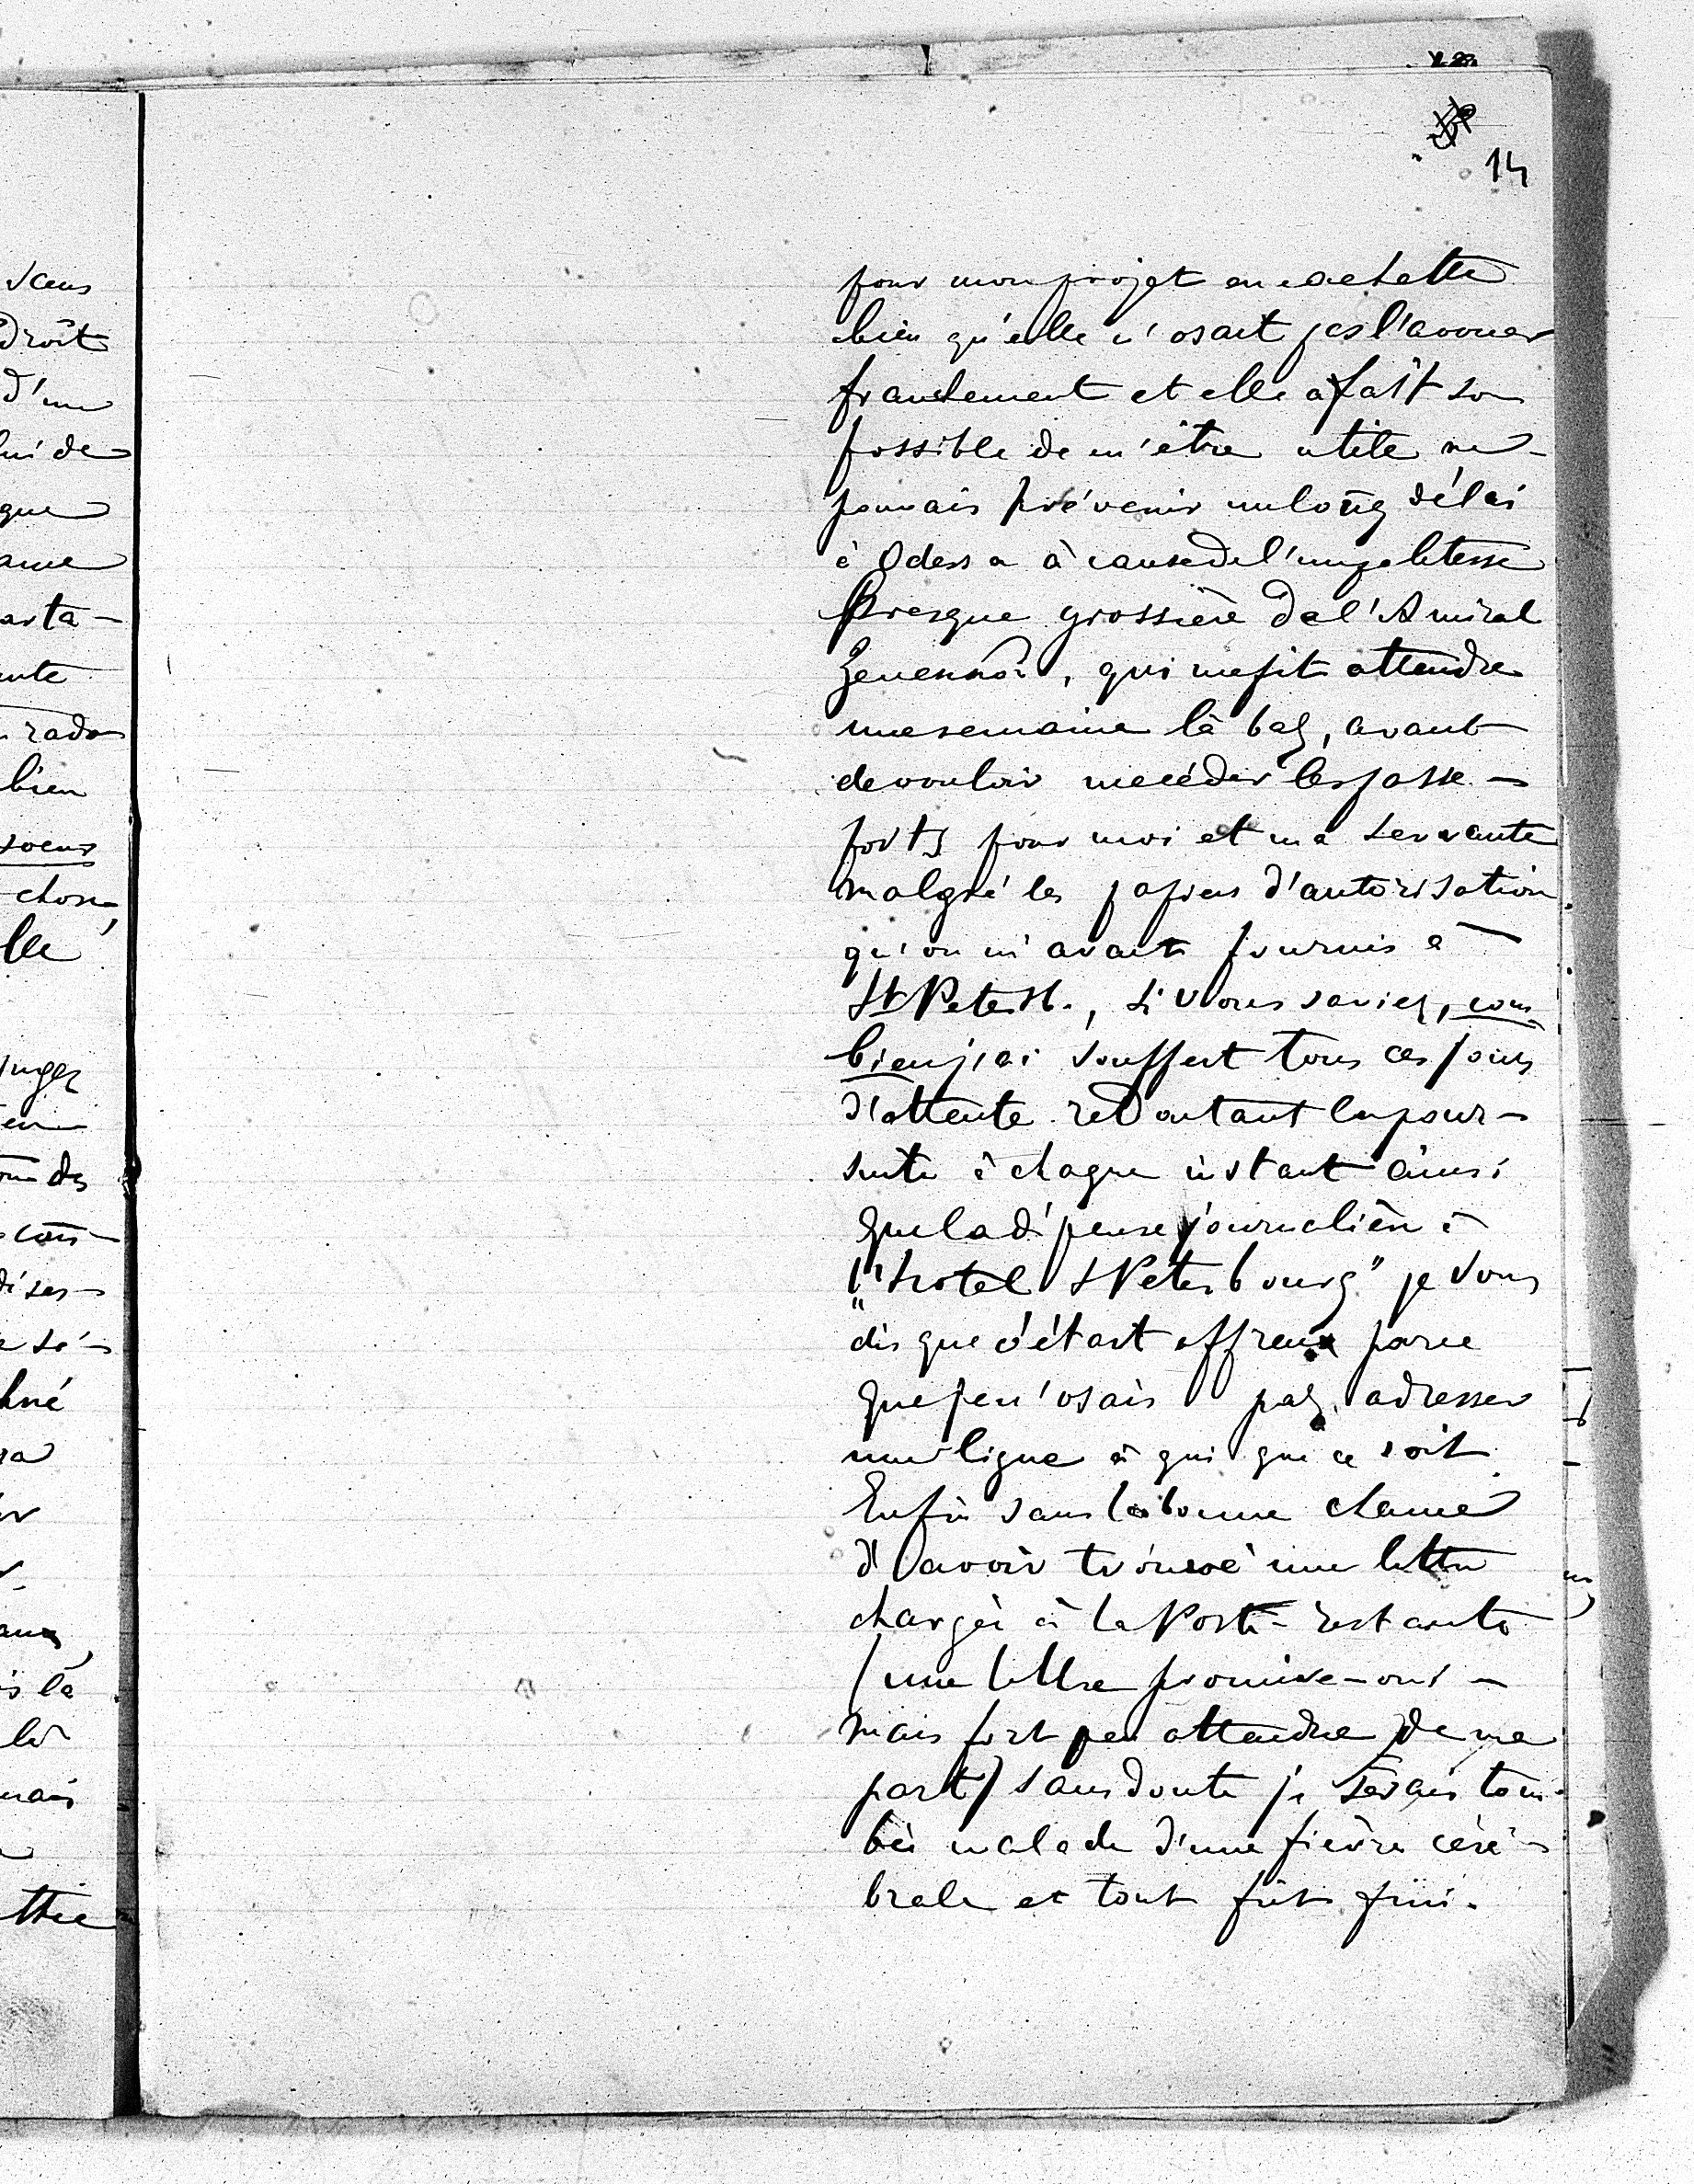 14
pour mon projet en cachette
bien qu'elle n'osait pas l'avouer
franchement et elle a fait son
possible de m'être utile ne
pouvais prévenir un long délai
à Odessa à cause de l'impolitesse
presque grossière de l'Amiral
Zenennoi, qui me fit attendre
une semaine là bas, avant
de vouloir me céder les passe-
ports pour moi et ma servante
malgré les papiers d'autorisation
qu'on m'avait fournis à
St Petersb., si vous saviez, com
bien j'ai souffert tous ces jours
d'attente redoutant la pour-
suite à chaque instant ainsi
que la dépense journalière à
l'"hotel St Petersbourg" je vous
dis que c'était affreux parce
que je n'osais pas adresser
une ligne à qui que ce soit.
Enfin sans la bonne chance
d'avoir trouvé une lettre
chargée à la Poste-restante
(une lettre promise - oui -
mais fort peu attendue de ma
part) sans doute je serais tom-
bée malade d'une fièvre céré-
brale et tout fût fini.
sans
droit
d'une
lui de
que
ame
arta-
ante
rado
bien
soeur
chose,
lle
juger
des
con-
tre